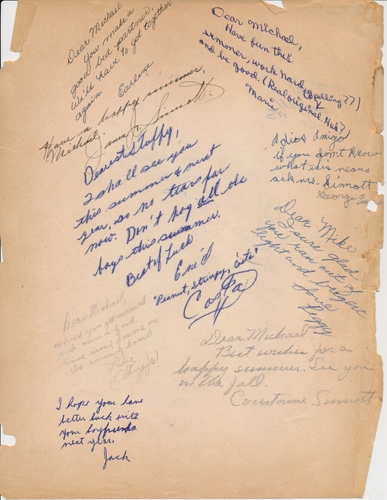 Dear Michael
You make a
good bid partner.
We'll have to get together
again
Earlene
Dear Michael,
Have fun this
summer, work hard (spelling??)
and be good (Real original Huh?)
Marie
Have a happy summer,
Michael.
Sinnott
Dearest Stuffy,
I shall see you
this summer & next
year, so no tears for
now. Don't hog all the
boys this summer.
Best of Luck
"Peanut, stumpy,
Costa
Adios Amigo
If you don't know
what this means
ask mrs. Sinnott
George
Dear Mike
sure glad
you ran out of
Love
Peggy
Dear Michael,
Love,
Dear Michael
Best wishes for a
happy summer. See you
in the fall.
Constance Sinnott
I hope you have
better luck with
your boyfriends
next year.
Jack